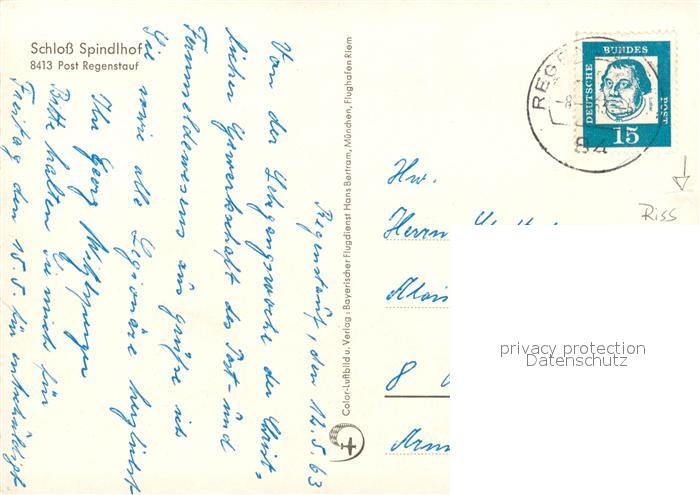 Schloß Spindlhof
8413 Post Regenstauf
Regenstauf, den 12.5.63
Von der Lehrgangswoche der Christ-
lichen Gewerkschaft des Post- und
Fernmeldewesens aus grüße ich
Sie sowie alle Legionäre herzlichst
Ihr Georg
Bitte halten Sie mich für
Freitag den 15.5 für entschuldigt
Color-Luftbild u. Verlag: Bayerischer Flugdienst Hans Bertram, München, Flughafen Riem
DEUTSCHE BUNDESPOST
15
84
Riss
Hw.
Herrn
Alois
8
privacy protection
Datenschutz